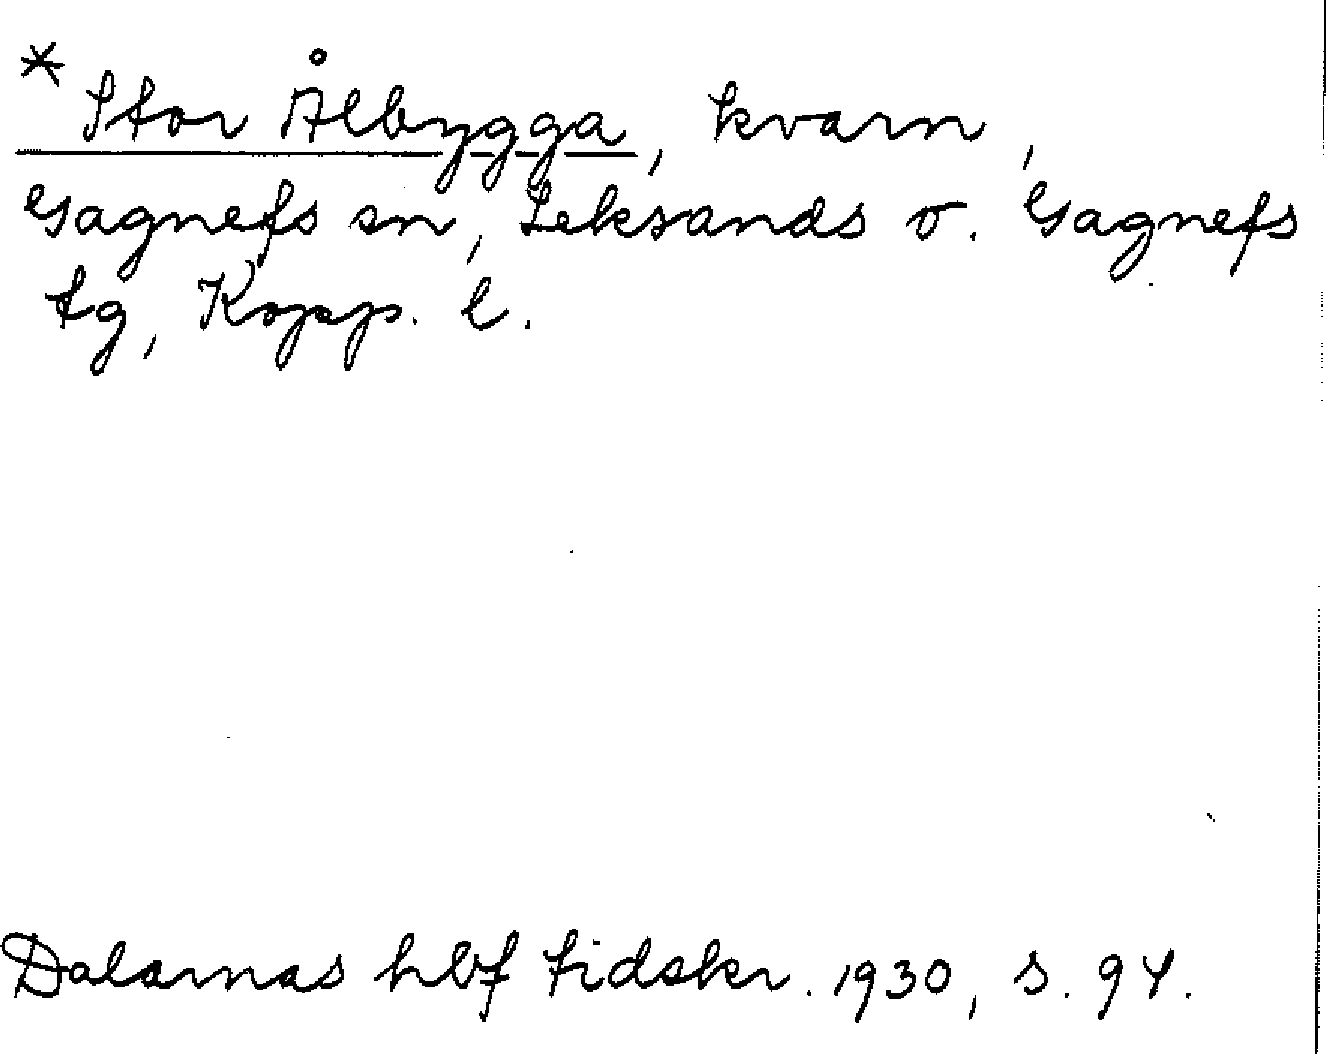 * Stor Ålbygga, kvarn,
Gagnefs sn, Leksands o. Gagnefs
tg, Kopp. l.
Dalarnas hbf tidskr. 1930, s. 94.